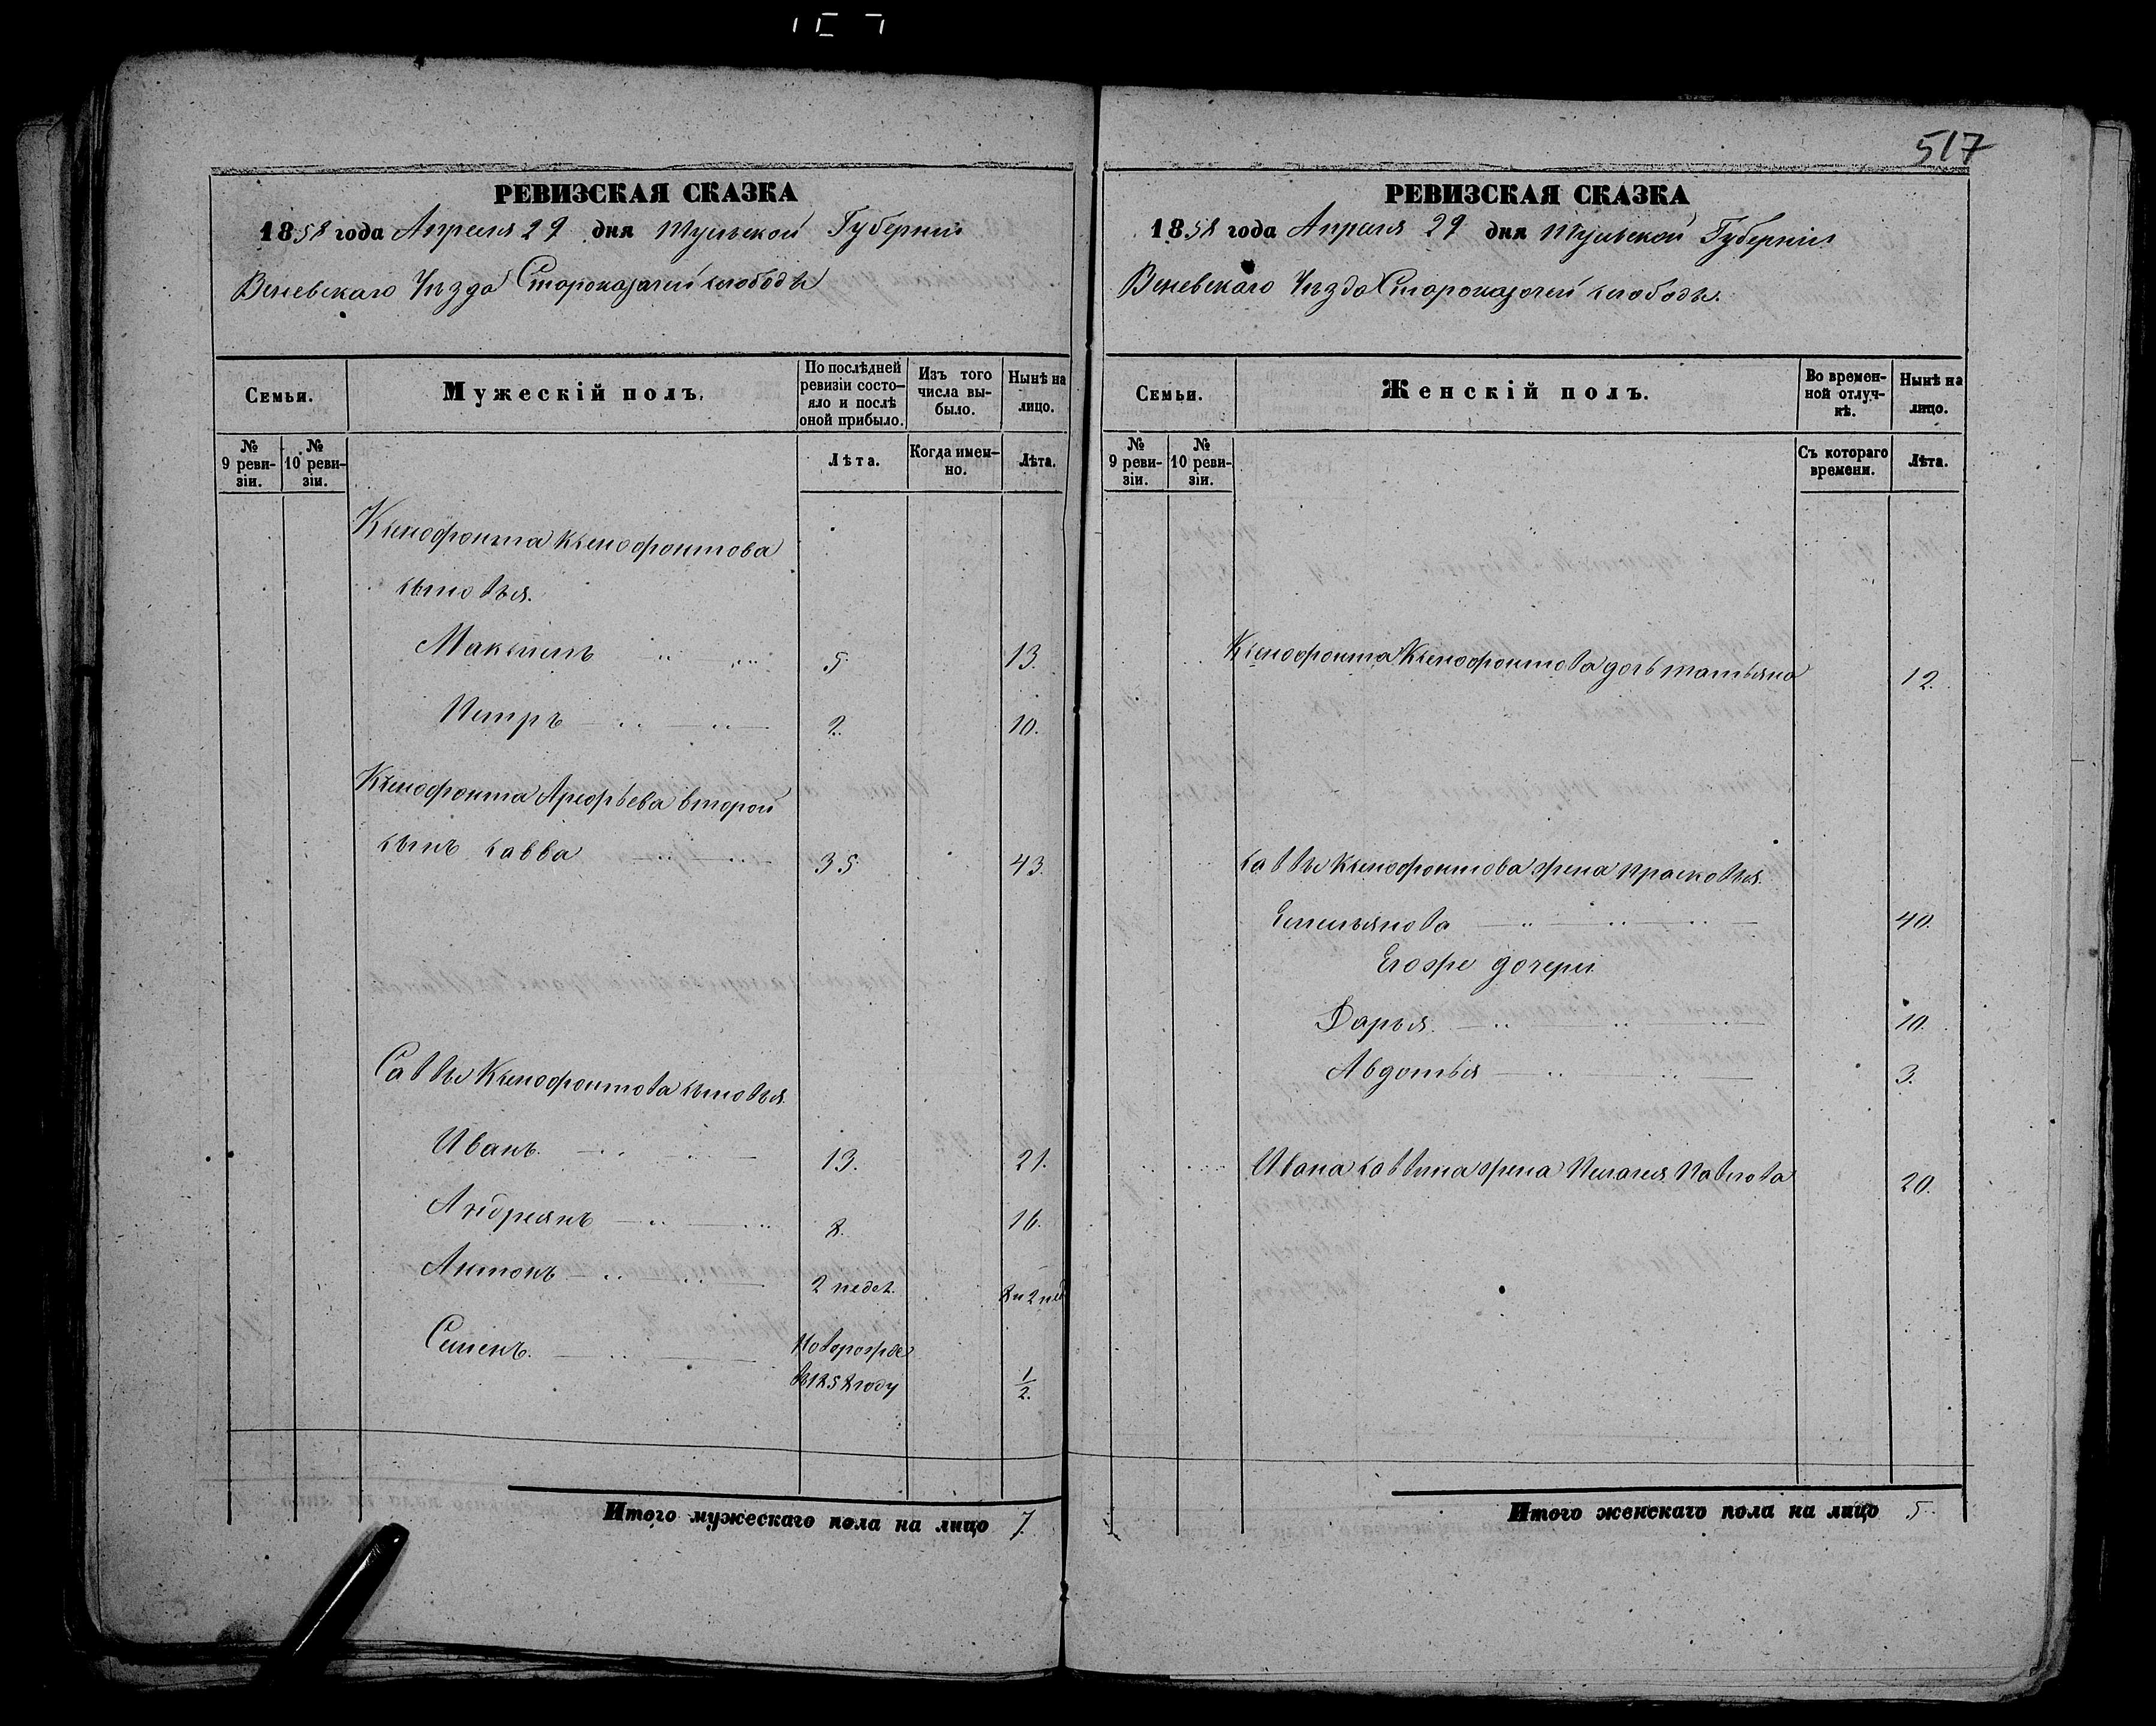 517
РЕВИЗСКАЯ СКАЗКА
1858 года Апреля 29 дня Тульской Губернии
Веневскаго Уѣзда Староказачей слободѣ
Семьи.
Мужескій полъ.
По послѣдней ревизіи состо-
яло и послѣ
оной прибыло.
Изъ того
числа вы-
было.
Нынѣ на
лицо.
№
9 реви-
зіи.
№
10 реви-
зіи.
Лѣта.
Когда имен-
но.
Лѣта.
Ксенофонта Ксенофонтова
сыновья.
Максимъ 5 13.
Петръ 2. 10.
Ксенофонта Арефьева второй
сынъ савва 35 43.
Саввы Ксенофонтова сыновья.
Иванъ. 13. 21.
Андреянъ 8. 16.
Антонъ 2 недел. 8 и 2 нед
Семенъ.Новорожде
въ 1858 году 1/2.
Итого мужескаго пола на лицо 7.
РЕВИЗСКАЯ СКАЗКА
1858 года Апреля 29 дня Тульской Губернии
Веневскаго Уѣзда Староказачей слободѣ.
Семьи.
Женскій полъ.
Во времен-
ной отлуч-
кѣ.
Нынѣ на
лицо.
№
9 реви-
зіи.
№
10 реви-
зіи.
Съ котораго
времени.
Лѣта.
Ксенофонта Ксенофонтова дочь татьяна 12.
саввы Ксенофонтова жена прасковья.
Емельянова 40.
Егоже дочери
Дарья. 10.
Авдотья 3.
Ивана саввина жена Пелагея Павлова 20.
Итого женскаго пола на лицо 5.